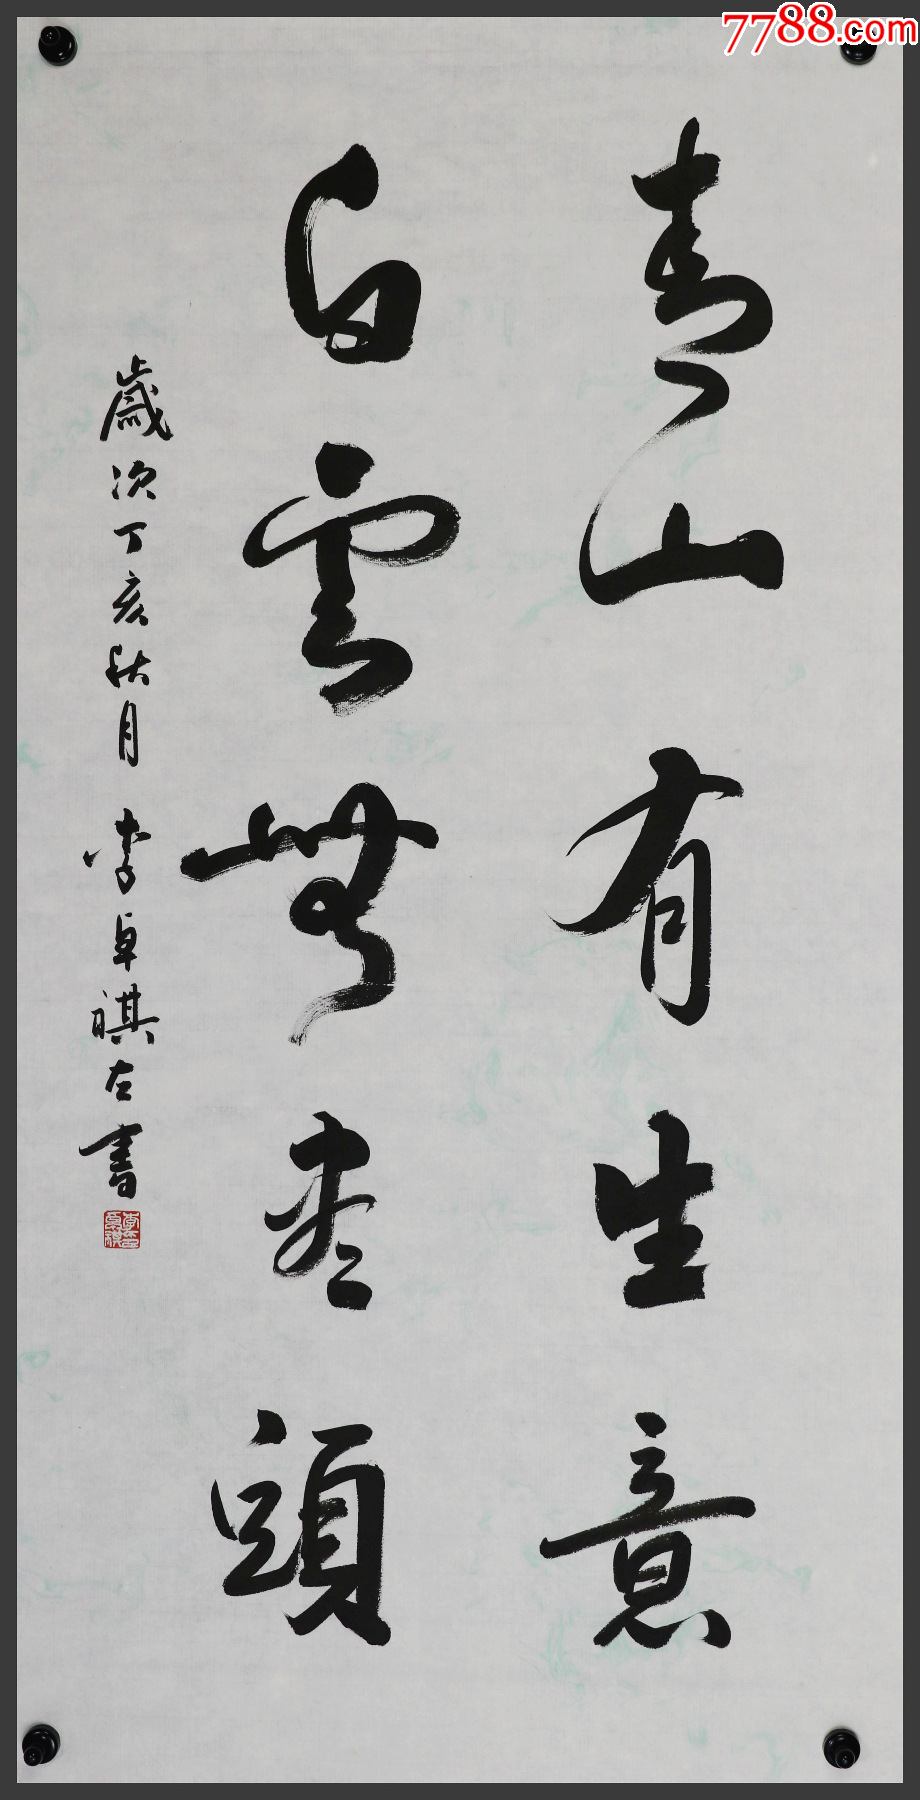 青山有生意
白雲無尽頭
歲次丁亥秋月 李卓祺左書
7788.com